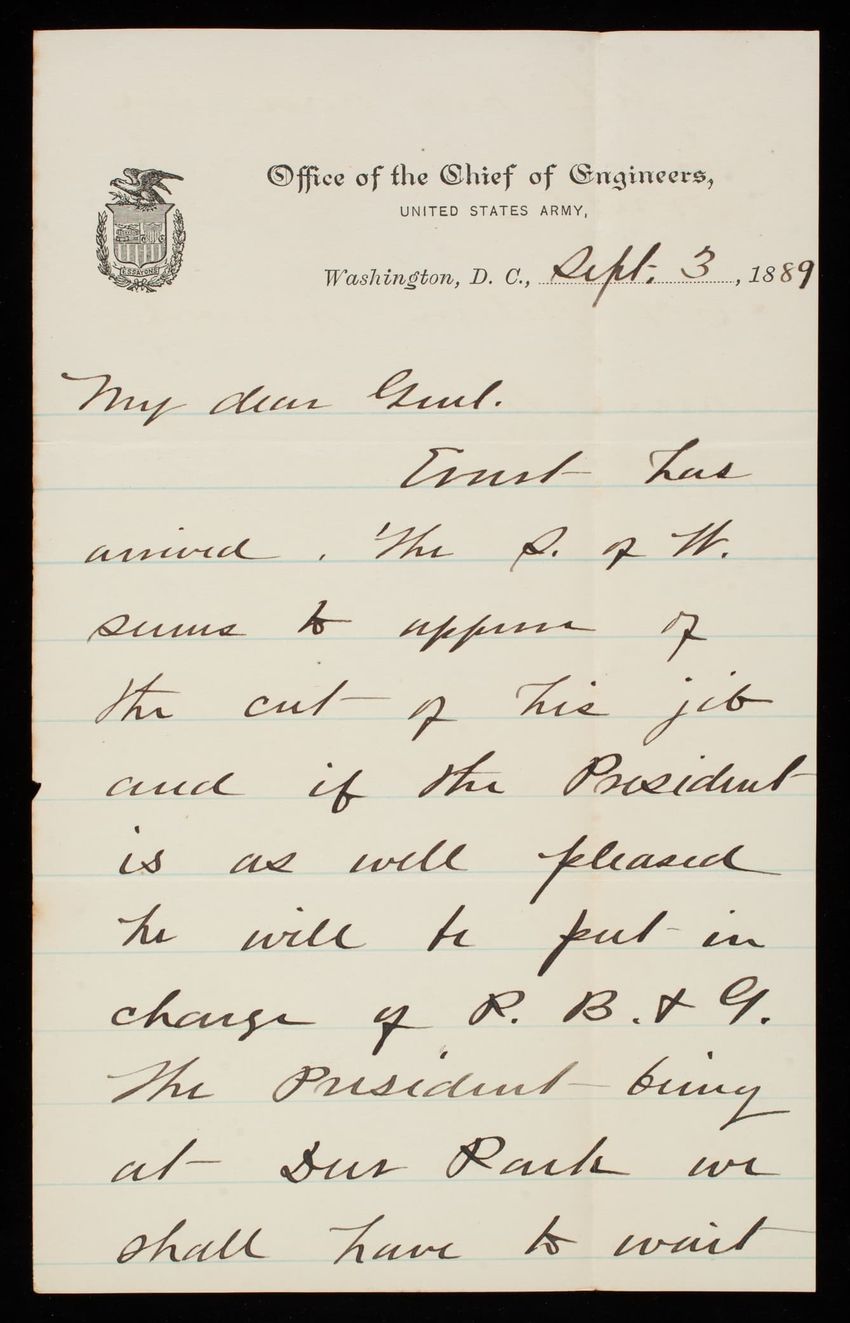 Office of the Chief of Engineers,
UNITED STATES ARMY,
ESSAYONS
Washington, D. C., Sept. 3, 1889
My dear Genl.
Ernst has
arrived. The S. of W.
seems to approve of
the cut of his jib
and if the President
is as well pleased
he will be put in
charge of P. B. & G.
The President being
at Deer Park we
shall have to wait